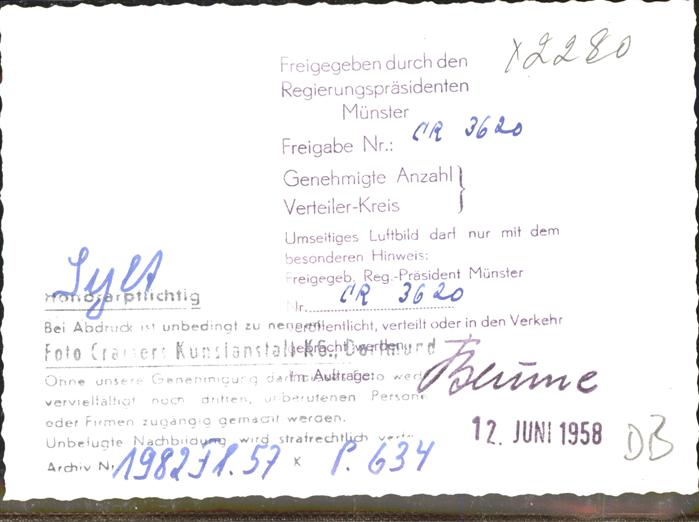 x2280
Freigegeben durch den
Regierungspräsidenten
Münster
Freigabe Nr.: CR 3620
Genehmigte Anzahl
Verteiler-Kreis
Umseitiges Luftbild darf nur mit dem
besonderen Hinweis:
Freigegeb. Reg.-Präsident Münster
Nr. CR 3620
veröffentlicht, verteilt oder in den Verkehr
gebracht werden.
Im Auftrage:
Blume
12. JUNI 1958
DB
Sylt
Honorarpflichtig
Bei Abdruck ist unbedingt zu nennen:
Foto Cramers Kunstanstalt KG., Dortmund
Ohne unsere Genehmigung darf Foto
vervielfältigt noch dritten, unberufenen Personen
oder Firmen zugängig gemacht werden.
Unbefugte Nachbildung wird strafrechtlich
Archiv Nr. x P. 634